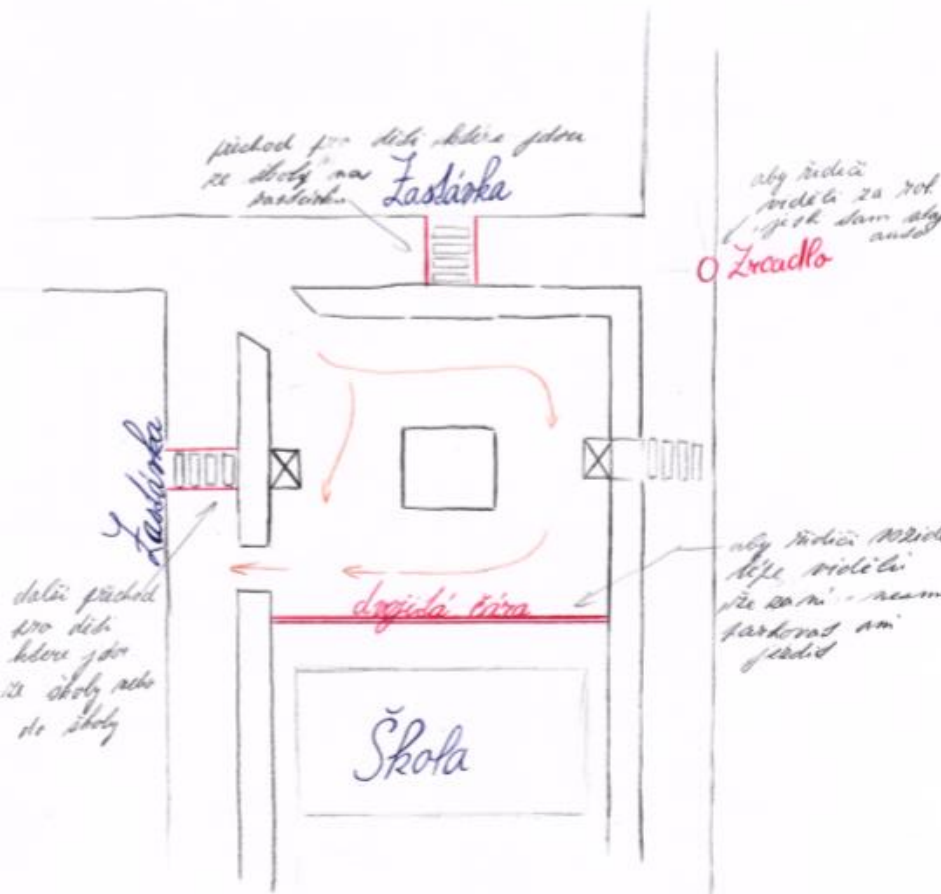 přechod pro děti které jdou
ze školy na
zastávku
Zastávka
aby řidiči
viděli za roh
auto
Zrcadlo
Zastávka
další přechod
pro děti
které jdou
ze školy nebo
do školy
dvojitá čára
aby řidiči
lépe viděli
že za ní
parkovat ani
jezdit
Škola